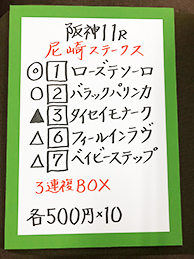 阪神11R
尼崎ステークス
◎1ローズテソーロ
○2バラックパリンカ
▲3タイセイモナーク
△6フィールインラヴ
△7ベイビーステップ
3連複BOX
各500円×10